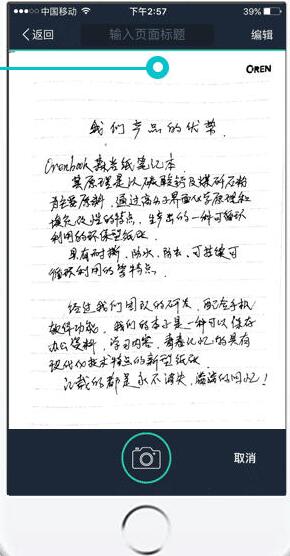 中国移动 下午2:57 39%
返回 输入页面标题 编辑
OREN
我们产品的优势
Orenbook森岩纸笔记本
其原理是以碳酸钙及煤矸石粉
为主要原料,通过高分子界面化学原理和
填充改性的特点,生产出的一种可循环
利用的环保型纸张
具有耐撕、防水、防虫、可持续可
循环利用的等特点
经过我们团队的研发,配合手机
软件功能,我们的本子是一种可以保存
办公资料,学习内容,青春记忆的具有
现代化技术特点的新型纸张
记载的都是永不消失,溢满的回忆!
取消